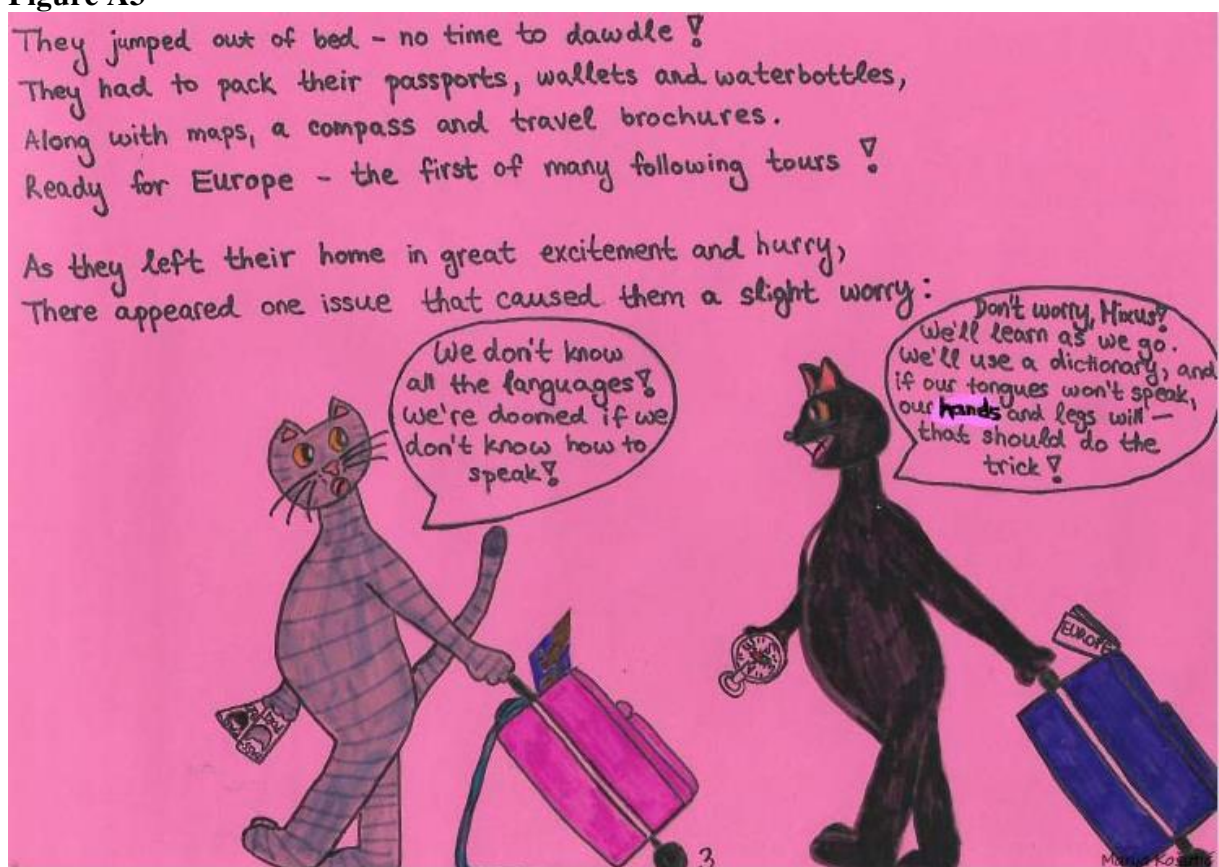 They jumped out of bed - no time to dawdle!
They had to pack their passports, wallets and waterbottles,
Along with maps, a compass and travel brochures.
Ready for Europe - the first of many following tours!
As they left their home in great excitement and hurry,
There appeared one issue that caused them a slight worry:
We don't know
all the languages!
We're doomed if we
don't know how to
speak!
Don't worry, Mixus!
We'll learn as we go.
We'll use a dictionary, and
if our tongues won't speak,
our hands and legs will —
that should do the
trick!
EUROPE
3